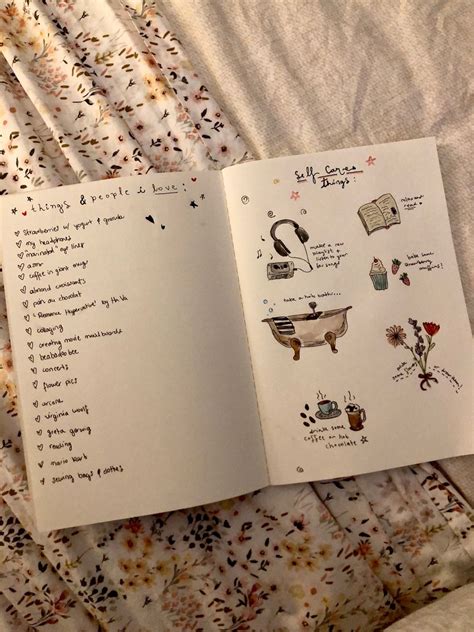 things & people i love:
strawberries w/ yogurt & granola
my headphones
lip liner
asmr
coffee in giant mugs
almond croissants
pain au chocolat
"Romance
collaging
creating mode moodboards
beabadoobee
concerts
flower pics
arcane
virginia woolf
greta gerwig
reading
mario kart
sewing bags & clothes
self care
things:
make a new
playlist &
listen to your
fav songs!
relax and
read
bake some
strawberry
muffins!
take a hot bath...
drink some
coffee or hot
chocolate